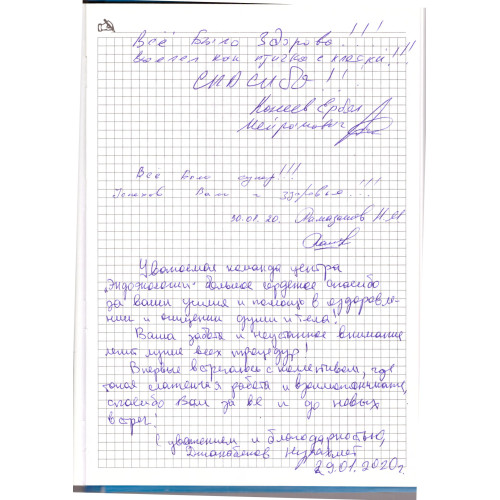 Всё было Здорово!!!
взлетел как птичка с клетки!!!
СПАСИБО!!!
Ербол
Мейрамович
Всё было супер!!!
Успехов Вам и Здоровья!!!
30.01.20. Рамазанов Н.М
Уважаемая команда центра
"Эндоэкологии" большое сердечное спасибо
за ваши усилия и помощь в оздоровле-
нии и очищении души и тела!
Ваша забота и неустанное внимание
лечит лучше всех процедур!
Впервые встречаюсь с колективом, где
такая слаженная работа и взаимопонимание,
спасибо Вам за её и до новых
встреч!
С уважением и благодарностью,
29.01.2020г.